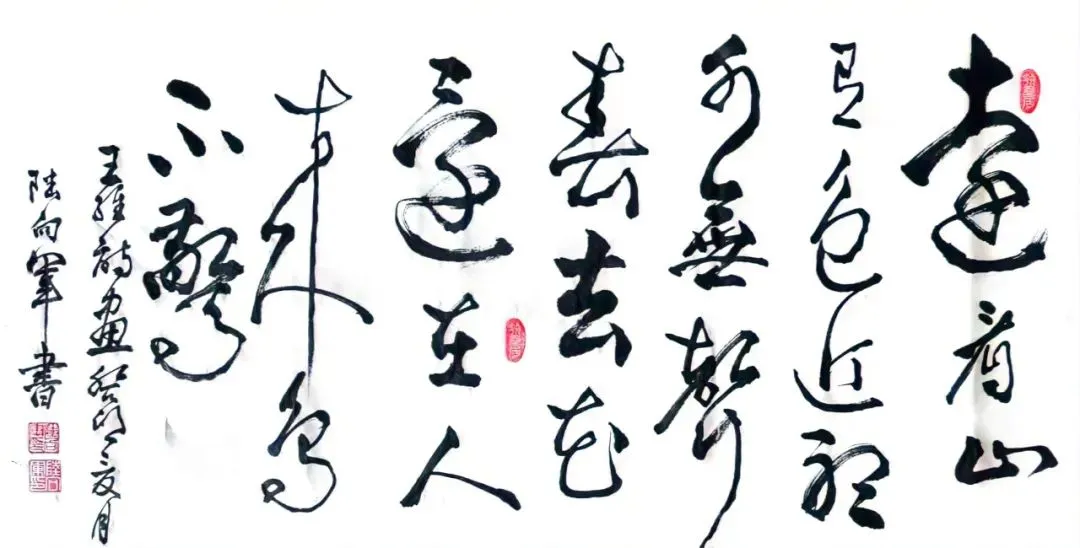 遠看山
有色近聽
水無聲
春去花
還在人
來鳥
不驚
王維詩畫癸卯之夏月
陸向軍書